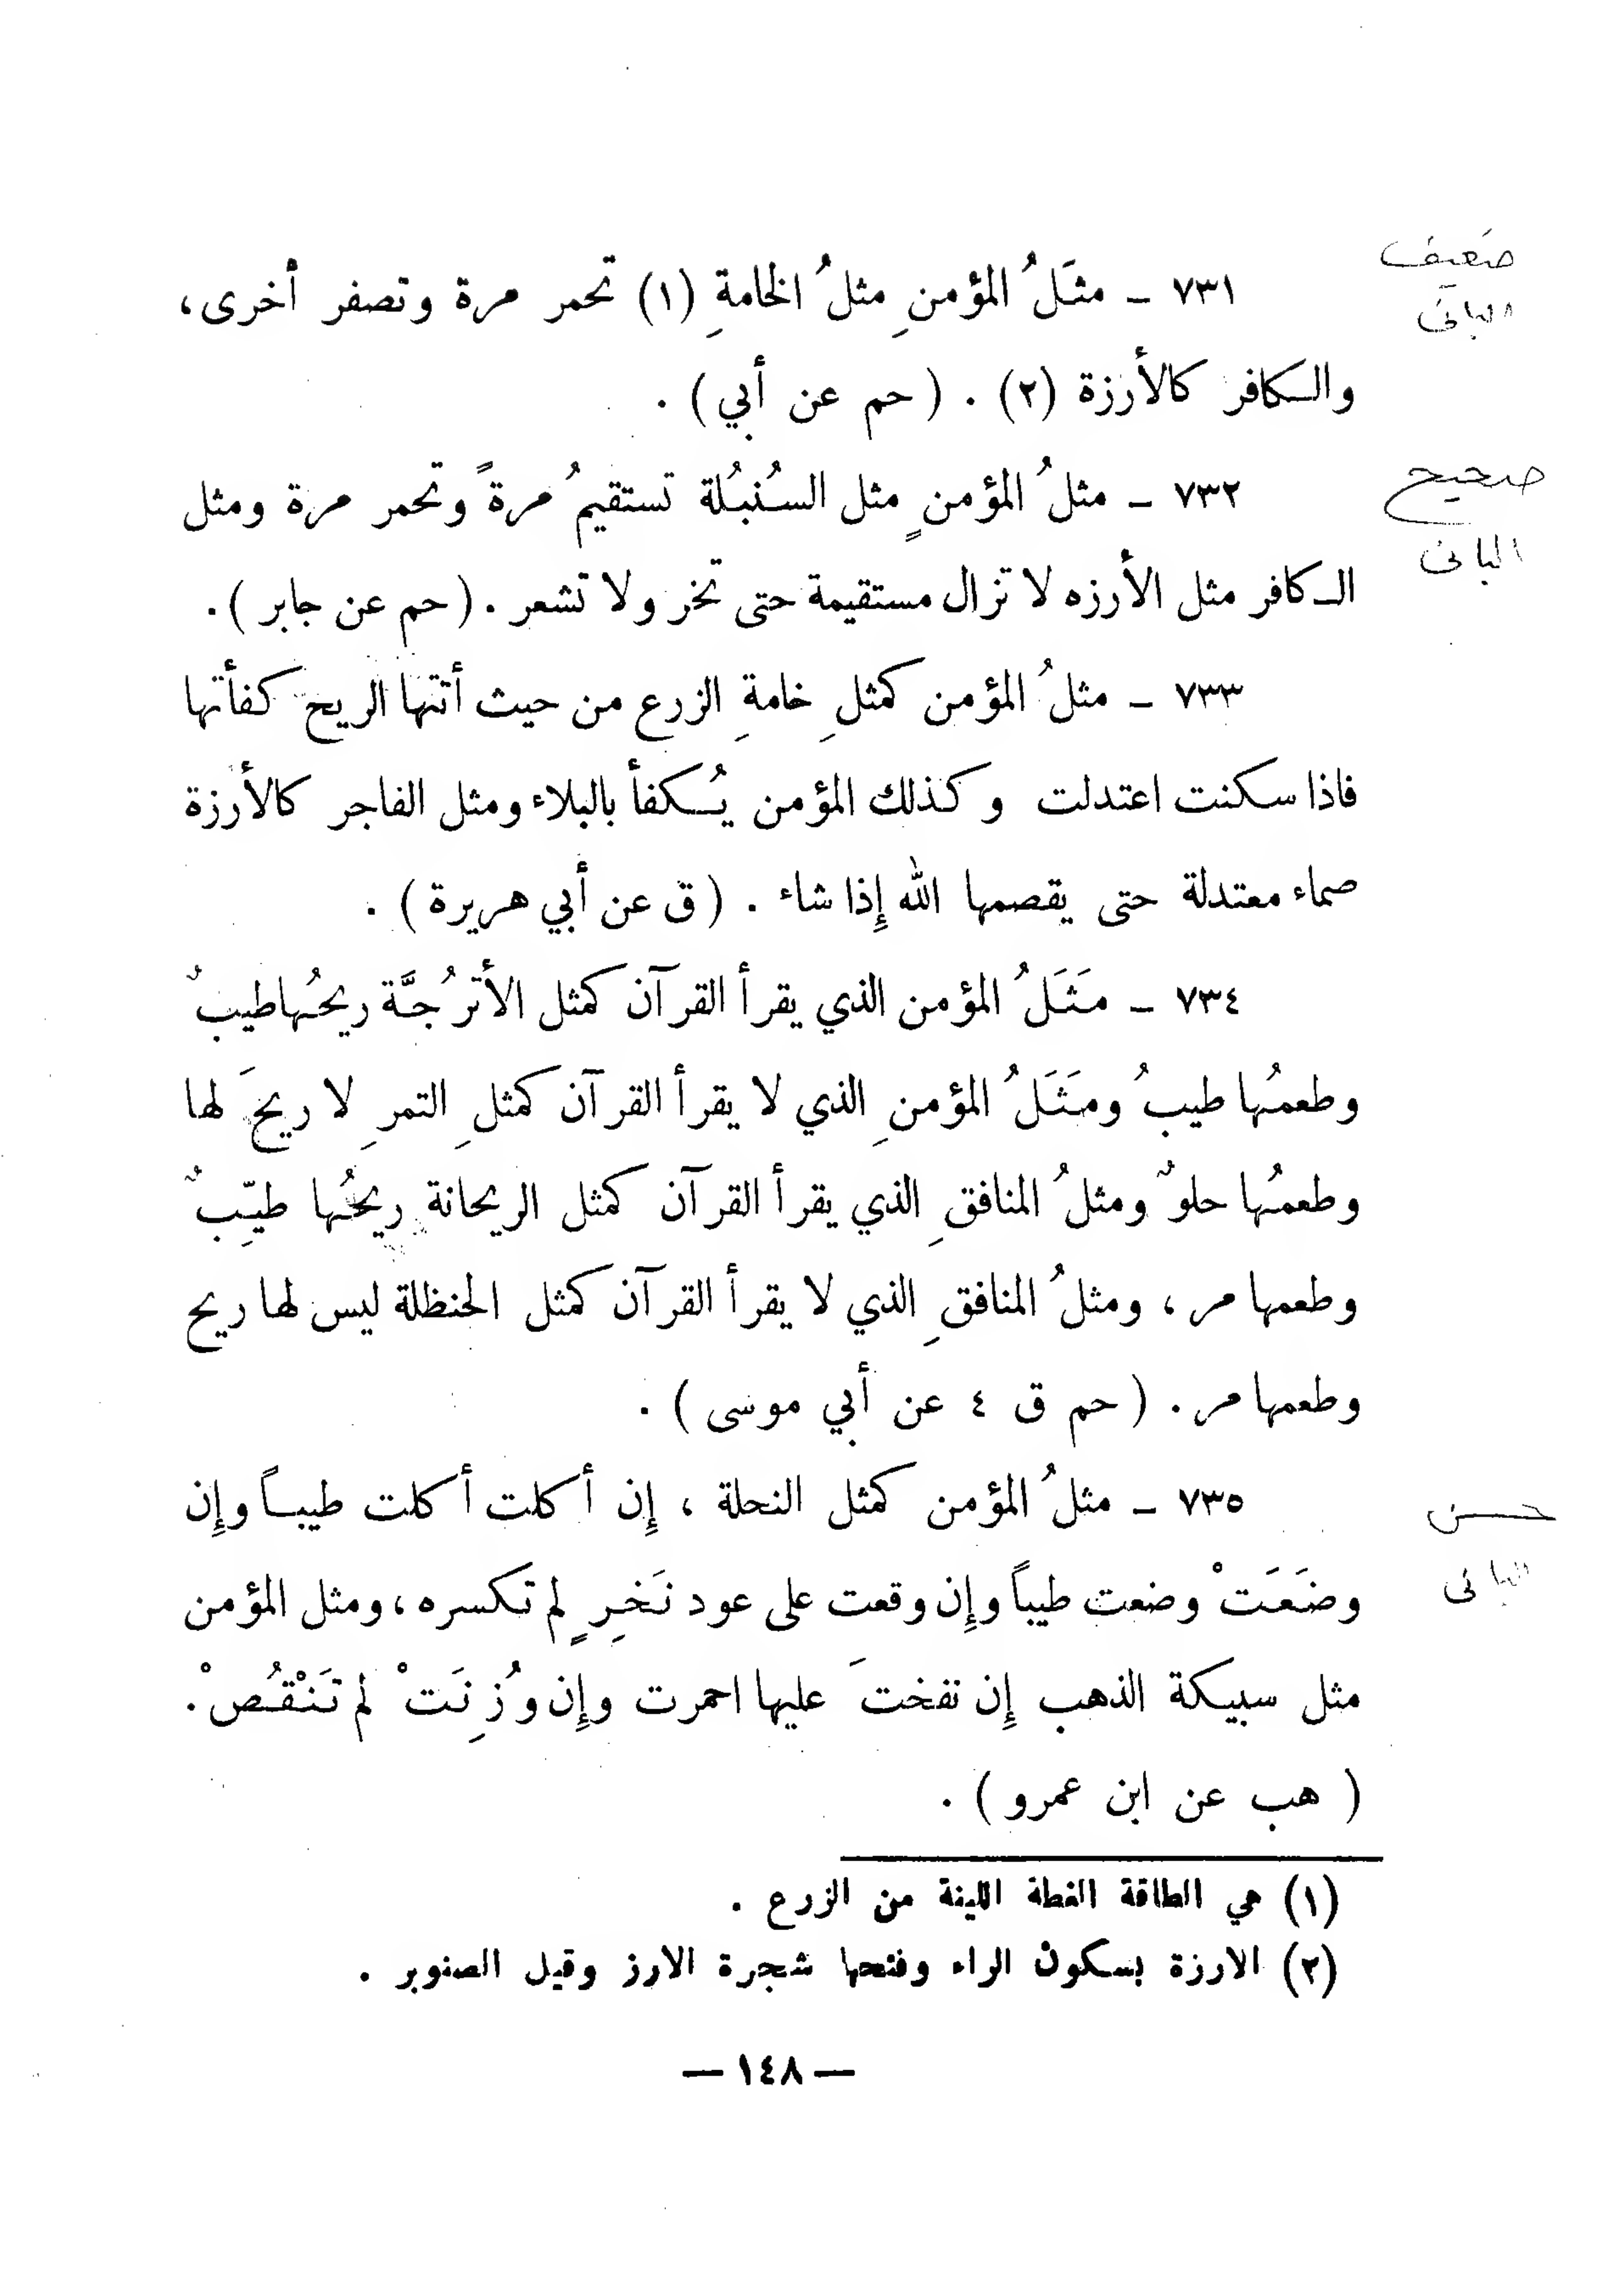 ٧٣١ – مثَلُ المؤمنِ مثلُ الخامةِ (١) تحمر مرة وتصفر أخرى،
ضعيف
البانى
والكافر كالأرزة (٢) . ( حم عن أبي ) .
٧٣٢ – مثلُ المؤمنٍ مثل السُنبُلة تستقيمُ مرةً وتحمر مرة ومثل
صحيح
البانى
الكافر مثل الأرزه لا تزال مستقيمة حتى تخر ولا تشعر . ( حم عن جابر ) .
٧٣٣ – مثلُ المؤمن كمثلِ خامةِ الزرع من حيث أتتها الريح كفأتها
فاذا سكنت اعتدلت وكذلك المؤمن يُكفأ بالبلاء ومثل الفاجر كالأرزة
صماء معتدلة حتى يقصمها الله إِذا شاء . ( ق عن أبي هريرة ) .
٧٣٤ – مَثَلُ المؤمن الذي يقرأ القرآن كمثل الأترُجَّة ريحُها طيبٌ
وطعمُها طيبُ ومَثَلُ المؤمنِ الذي لا يقرأ القرآن كمثلِ التمرِ لا ريحَ لها
وطعمُها حلوٌ ومثلُ المنافقِ الذي يقرأ القرآن كمثل الريحانة ريحُها طيّبٌ
وطعمها مر ، ومثلُ المنافقِ الذي لا يقرأ القرآن كمثل الحنظلة ليس لها ريح
وطعمها مر . ( حم ق ٤ عن أبي موسى ) .
٧٣٥ – مثلُ المؤمن كمثل النحلة ، إِن أكلت أكلت طيباً وإِن
حسن
البانى
وضَعَتْ وضعت طيباً وإِن وقعت على عود نَخِرٍ لم تكسره ، ومثل المؤمن
مثل سبيكة الذهب إِن نفختَ عليها احمرت وإِن وُزِنَتْ لم تَنْقُصْ .
( هب عن ابن عمرو ) .
(١) هي الطاقة الغطة اللينة من الزرع .
(٢) الارزة بسكون الراء وفتحها شجرة الارز وقيل الصنوبر .
— ١٤٨ —